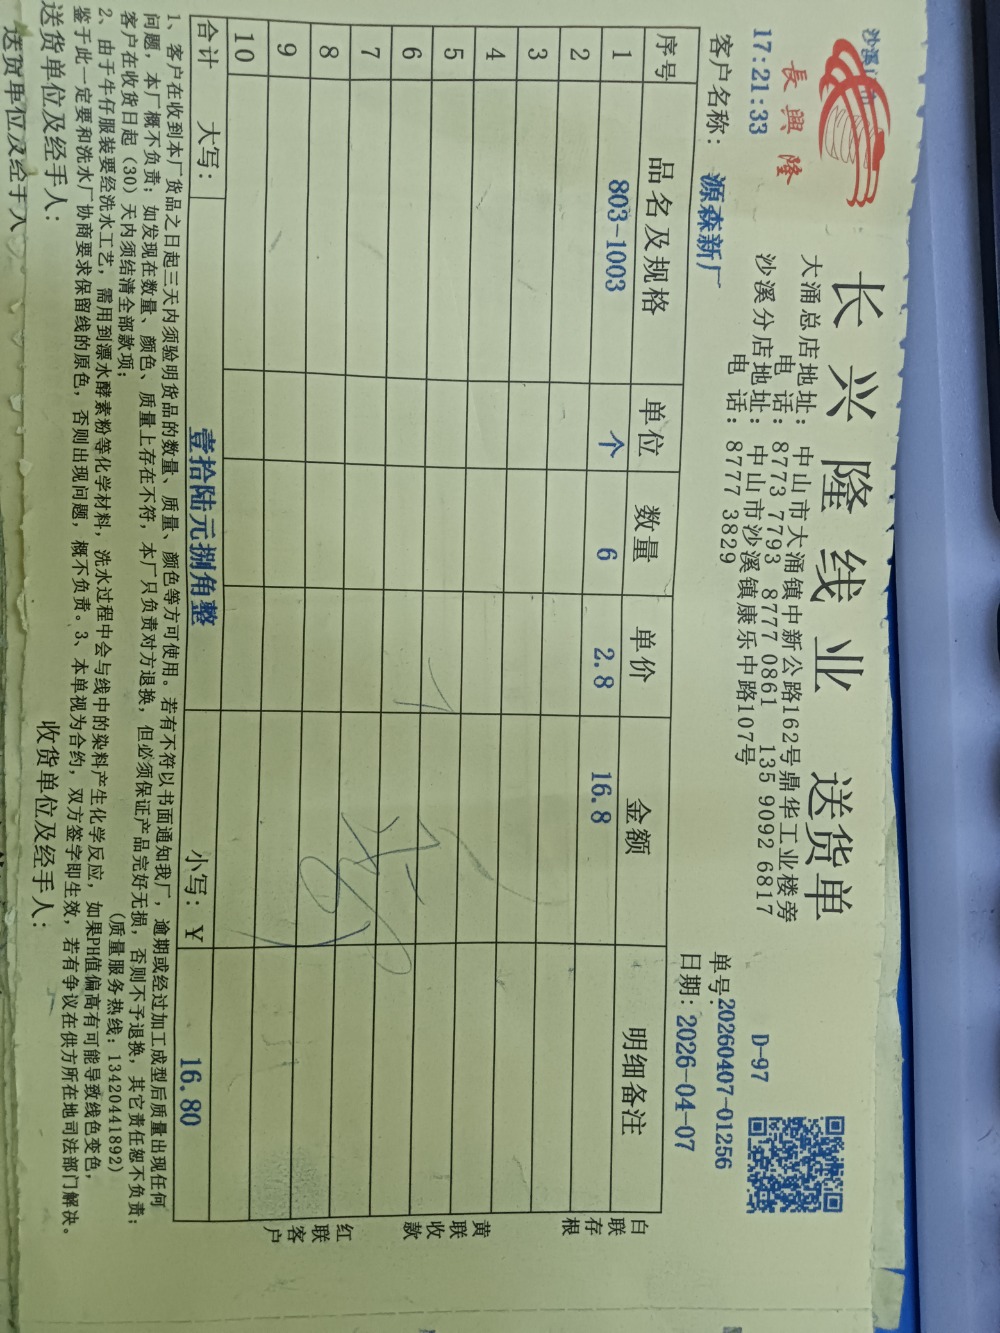 長興隆
长兴隆线业 送货单
D-97
17:21:33
大涌总店地址：中山市大涌镇中新公路162号鼎华工业楼旁
电 话：8773 7793 8777 0861 135 9092 6817
沙溪分店地址：中山市沙溪镇康乐中路107号
电 话：8777 3829
单号：20260407-01256
客户名称：源森新厂
日期：2026-04-07
序号 品名及规格 单位 数量 单价 金额 明细备注
1 803-1003 个 6 2.8 16.8
2
3
4
5
6
7
8
9
10
合计 大写：壹拾陆元捌角整 小写：¥ 16.80
白联存根
黄联收款
红联客户
1、客户在收到本厂货品之日起三天内须验明货品的数量、质量、颜色等方可使用。若有不符以书面通知我厂，逾期或经过加工成型后质量出现任何
问题，本厂概不负责；如发现在数量、颜色、质量上存在不符，本厂只负责对方退换，但必须保证产品完好无损，否则不予退换，其它责任恕不负责；
客户在收货日起（30）天内须结清全部款项； （质量服务热线：13420441892）
2、由于牛仔服装要经洗水工艺，需用到漂水酵素粉等化学材料，洗水过程中会与线中的染料产生化学反应，如果PH值偏高有可能导致线色变色，
鉴于此一定要和洗水厂协商要求保留线的原色，否则出现问题，概不负责。3、本单视为合约，双方签字即生效，若有争议在供方所在地司法部门解决。
送货单位及经手人： 收货单位及经手人：
送货单位及经手人